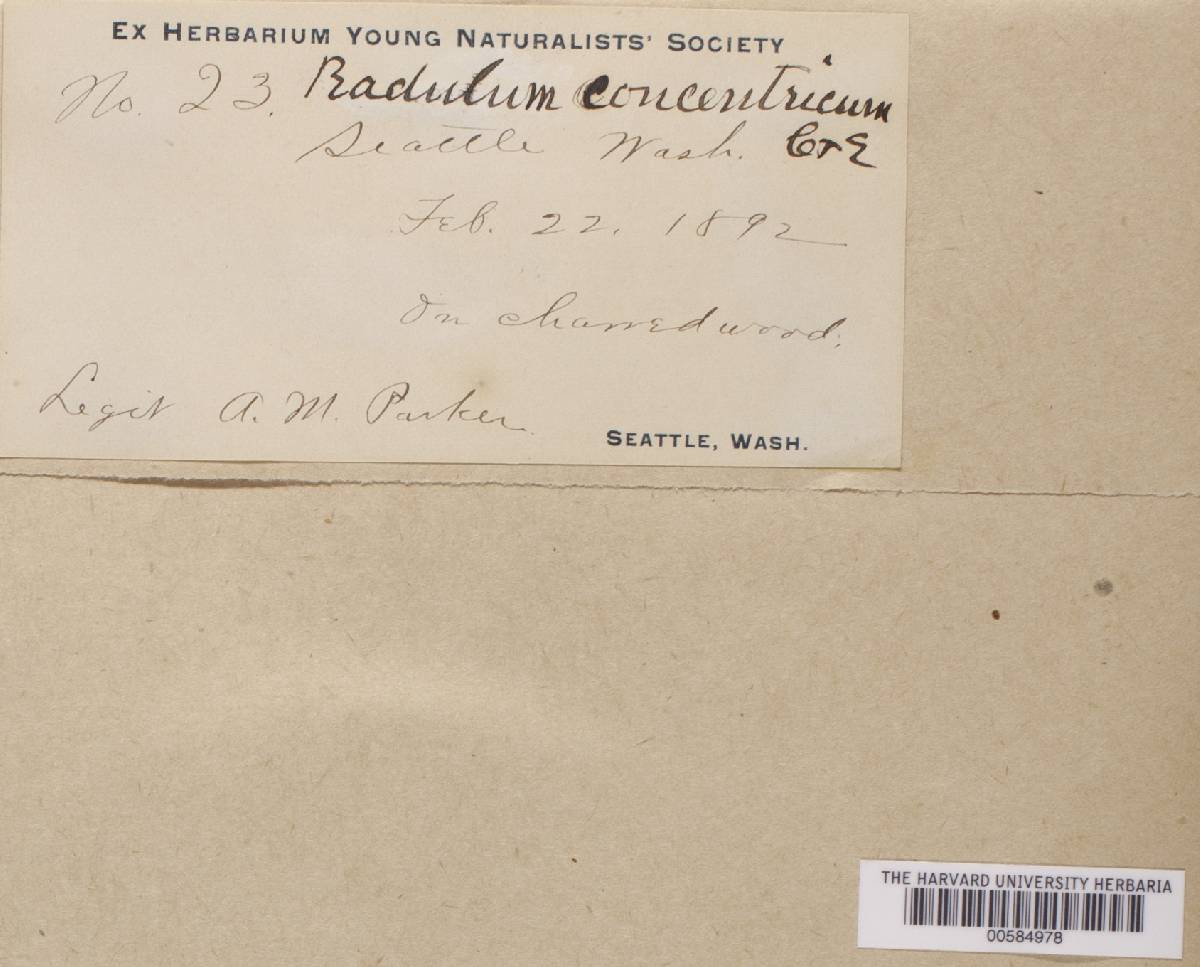 Ex Herbarium Young Naturalists' Society
No. 23. Radulum concentricum
Seattle Wash. C+E
Feb. 22. 1892
On charred wood.
Legit A. M. Parker.
Seattle, Wash.
THE HARVARD UNIVERSITY HERBARIA
00584978